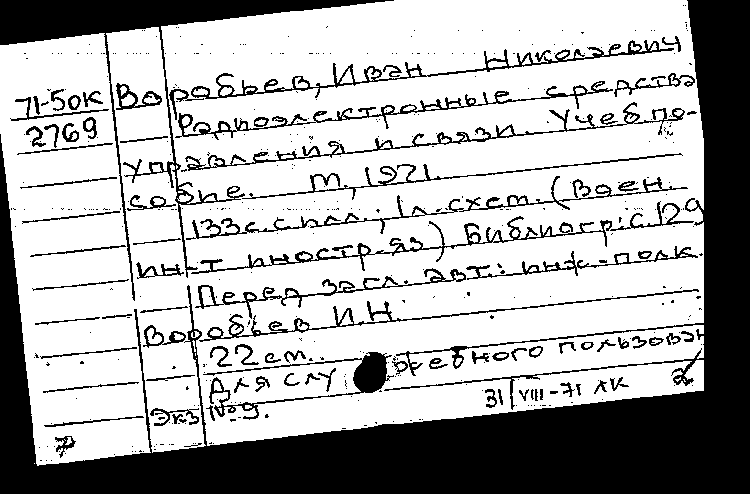 71-50К Воробьев, Иван Николаевич
2769 Радиоэлектронные средства
управления и связи. Учеб. по-
собие. М., 1971.
133 с. с илл.; 1 л. схем. (Воен.
ин-т иностр-яз). Библиогр: с. 129
Перед загл. авт.: инж.-полк.
Воробьев И.Н.
22 см.
Для служебного пользован
Экз №9. 31/VIII-71 ЛК 2
7